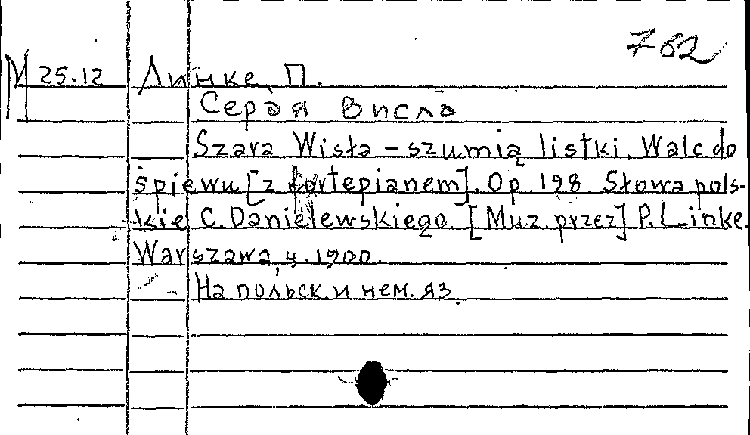 762
М 25.12 Линке, П.
Серая Висла
Szara Wisła – szumią listki. Walc do
śpiewu [z fortepianem]. Op. 198 Słowa pols-
kie C. Danielewskiego. [Muz. przez] P. Linke.
Warszawa, 1900.
На польск. и нем. яз.